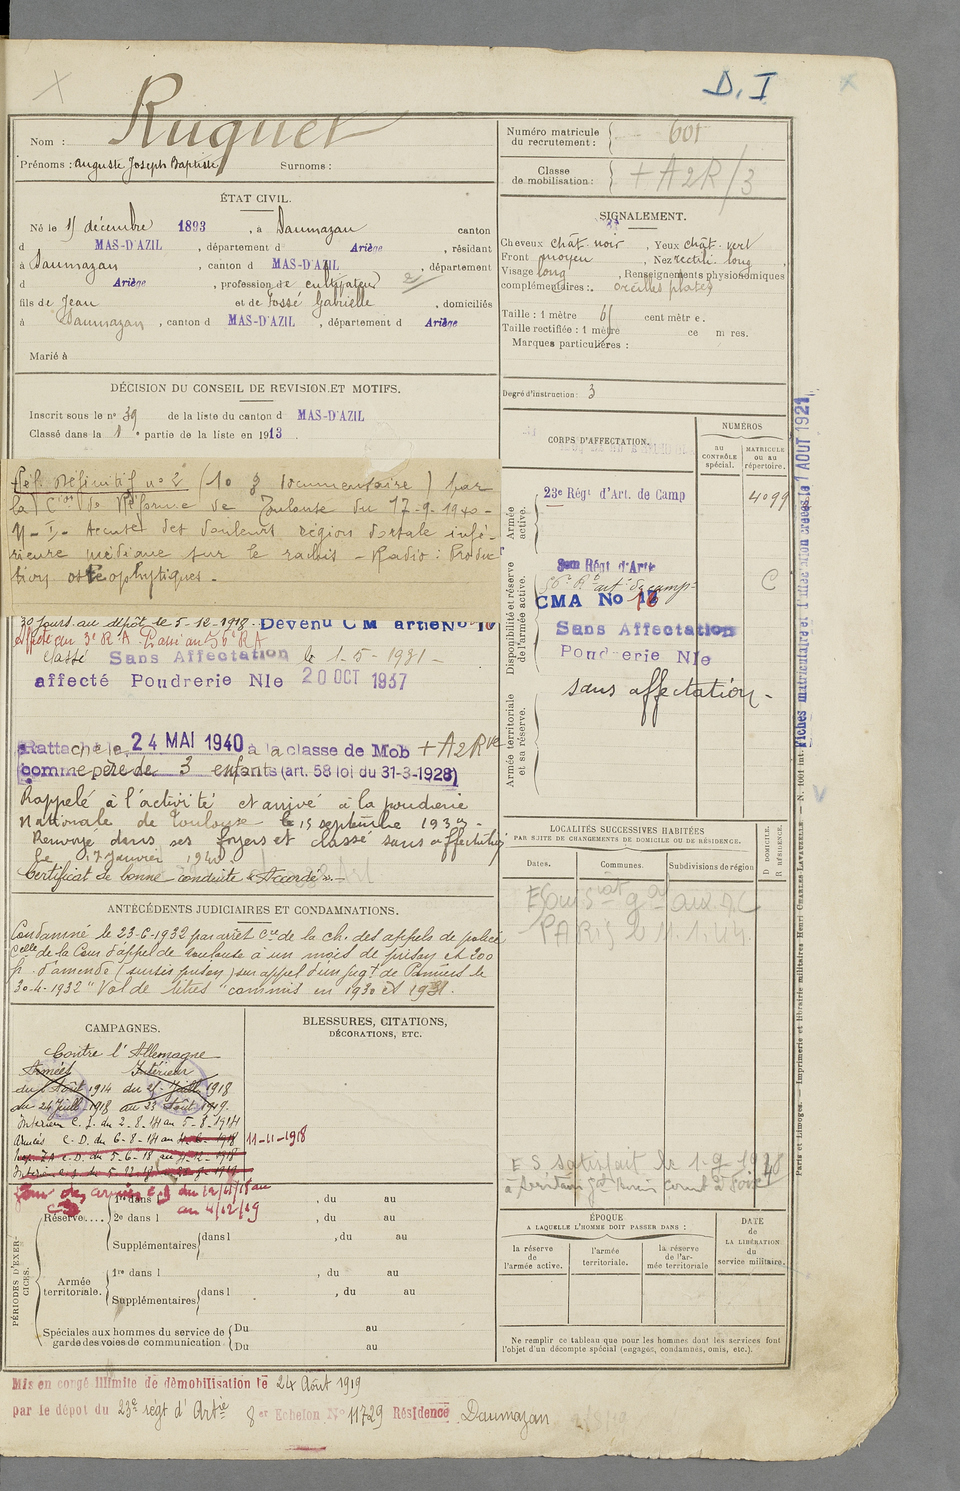 D. I
Ruquet
Nom :
Prénoms : Auguste Joseph Baptiste Surnoms :
ÉTAT CIVIL.
Né le 15 décembre 1893, à Daumazan canton
d MAS-D'AZIL, département d Ariège, résidant
à Daumazan, canton d MAS-D'AZIL, département
d Ariège, profession de cultivateur
fils de Jean et de Fossé Gabrielle, domiciliés
à Daumazan, canton d MAS-D'AZIL, département d Ariège
Marié à
DÉCISION DU CONSEIL DE REVISION ET MOTIFS.
Inscrit sous le n° 39 de la liste du canton d MAS-D'AZIL
Classé dans la 1e partie de la liste en 1913.
Réf. Définitif n° 2 (10 % documentaire) par
la Con de Réforme de Toulouse du 17-9-1940-
N-I- Accuse des douleurs région dorsale infé-
rieure médiane sur le rachis - Radio : Produc
tions ostéophytiques -
30 jours au dépôt le 5-12-1918. Devenu CM artie No
Affecté au 3e R.A. Passé au 56e RA
Classé Sans Affectation le 1-5-1931-
affecté Poudrerie Nle 20 OCT 1937
Rattaché le 24 MAI 1940 à la classe de Mob + A2Rve
comme père de 3 enfants (art. 58 loi du 31-3-1928)
Rappelé à l'activité et arrivé à la poudrerie
Nationale de Toulouse le 15 septembre 1939-
Renvoyé dans ses foyers et classé sans affectation
le 17 Janvier 1940.
Certificat de bonne conduite "Accordé".-
ANTÉCÉDENTS JUDICIAIRES ET CONDAMNATIONS.
Condamné le 23-6-1932 par arrêt Cre de la ch. des appels de police
Celle de la Cour d'appel de Toulouse à un mois de prison et 200
f. d'amende (sursis prison) sur appel d'un jugt de Pamiers le
30-4-1932 "Vol de titres" commis en 1930 et 1931.
CAMPAGNES.
Contre l'Allemagne
Armées Intérieur
du Août 1914 du 25 Juill. 1918
au 24 Juill. 1918 au 23 Août 1919.
Intérieur C.S. du 2-8-14 au 5-8-1914
Armées C-D. du 6-8-14 au 11-11-1918
au 4/12/19
BLESSURES, CITATIONS,
DÉCORATIONS, ETC.
PÉRIODES D'EXERCICES.
Réserve.... 1re dans l , du au
2e dans l , du au
Supplémentaires dans l , du au
Armée territoriale. 1re dans l , du au
Supplémentaires dans l , du au
Spéciales aux hommes du service de garde des voies de communication. Du au
Du au
Mis en congé illimité de démobilisation le 24 Août 1919
par le dépôt du 23e régt d'Artie 8er Echelon N° 11729 Résidence Daumazan
Numéro matricule du recrutement : 601
Classe de mobilisation : + A2R/3
SIGNALEMENT.
Cheveux chât. noir, Yeux chât. vert
Front moyen, Nez rectil. long
Visage long, Renseignements physionomiques
complémentaires : oreilles plates
Taille : 1 mètre 65 centimètres.
Taille rectifiée : 1 mètre ce m res.
Marques particulières :
Degré d'instruction : 3
CORPS D'AFFECTATION.
NUMÉROS
au CONTRÔLE spécial.
MATRICULE ou au répertoire.
Armée active.
23e Régt d'Art. de Camp 4099
Disponibilité et réserve de l'armée active.
Régt d'Artie
56e Rt art. de camp C
CMA No
Sans Affectation
Poudrerie Nle
Armée territoriale et sa réserve.
sans affectation -
LOCALITÉS SUCCESSIVES HABITÉES
PAR SUITE DE CHANGEMENTS DE DOMICILE OU DE RÉSIDENCE.
Dates. Communes. Subdivisions de région D DOMICILE. R RÉSIDENCE.
PARIS 11.1.44
E S satisfait le
ÉPOQUE
A LAQUELLE L'HOMME DOIT PASSER DANS :
la réserve de l'armée active.
l'armée territoriale.
la réserve de l'armée territoriale
DATE
de
LA LIBÉRATION
du
service militaire.
Ne remplir ce tableau que pour les hommes dont les services font
l'objet d'un décompte spécial (engagés, condamnés, omis, etc.).
Fiches matriculaire et d'affectation créées le 1 AOUT 1921
Paris et Limoges. — Imprimerie et librairie militaires Henri CHARLES-LAVAUZELLE. — N. 1001 int.